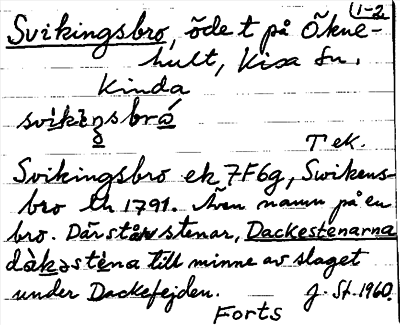 1-2
Svikingsbro, öde t på Öknehult, Kisa sn.
Kinda
svikiŋsbró
T ek.
Svikingsbro ek 7F6g, Swikens-
bro th 1791. Även namn på en
bro. Där står stenar, Dackestenarna
dàkəstèna till minne av slaget
under Dackefejden. J. St. 1960.
Forts